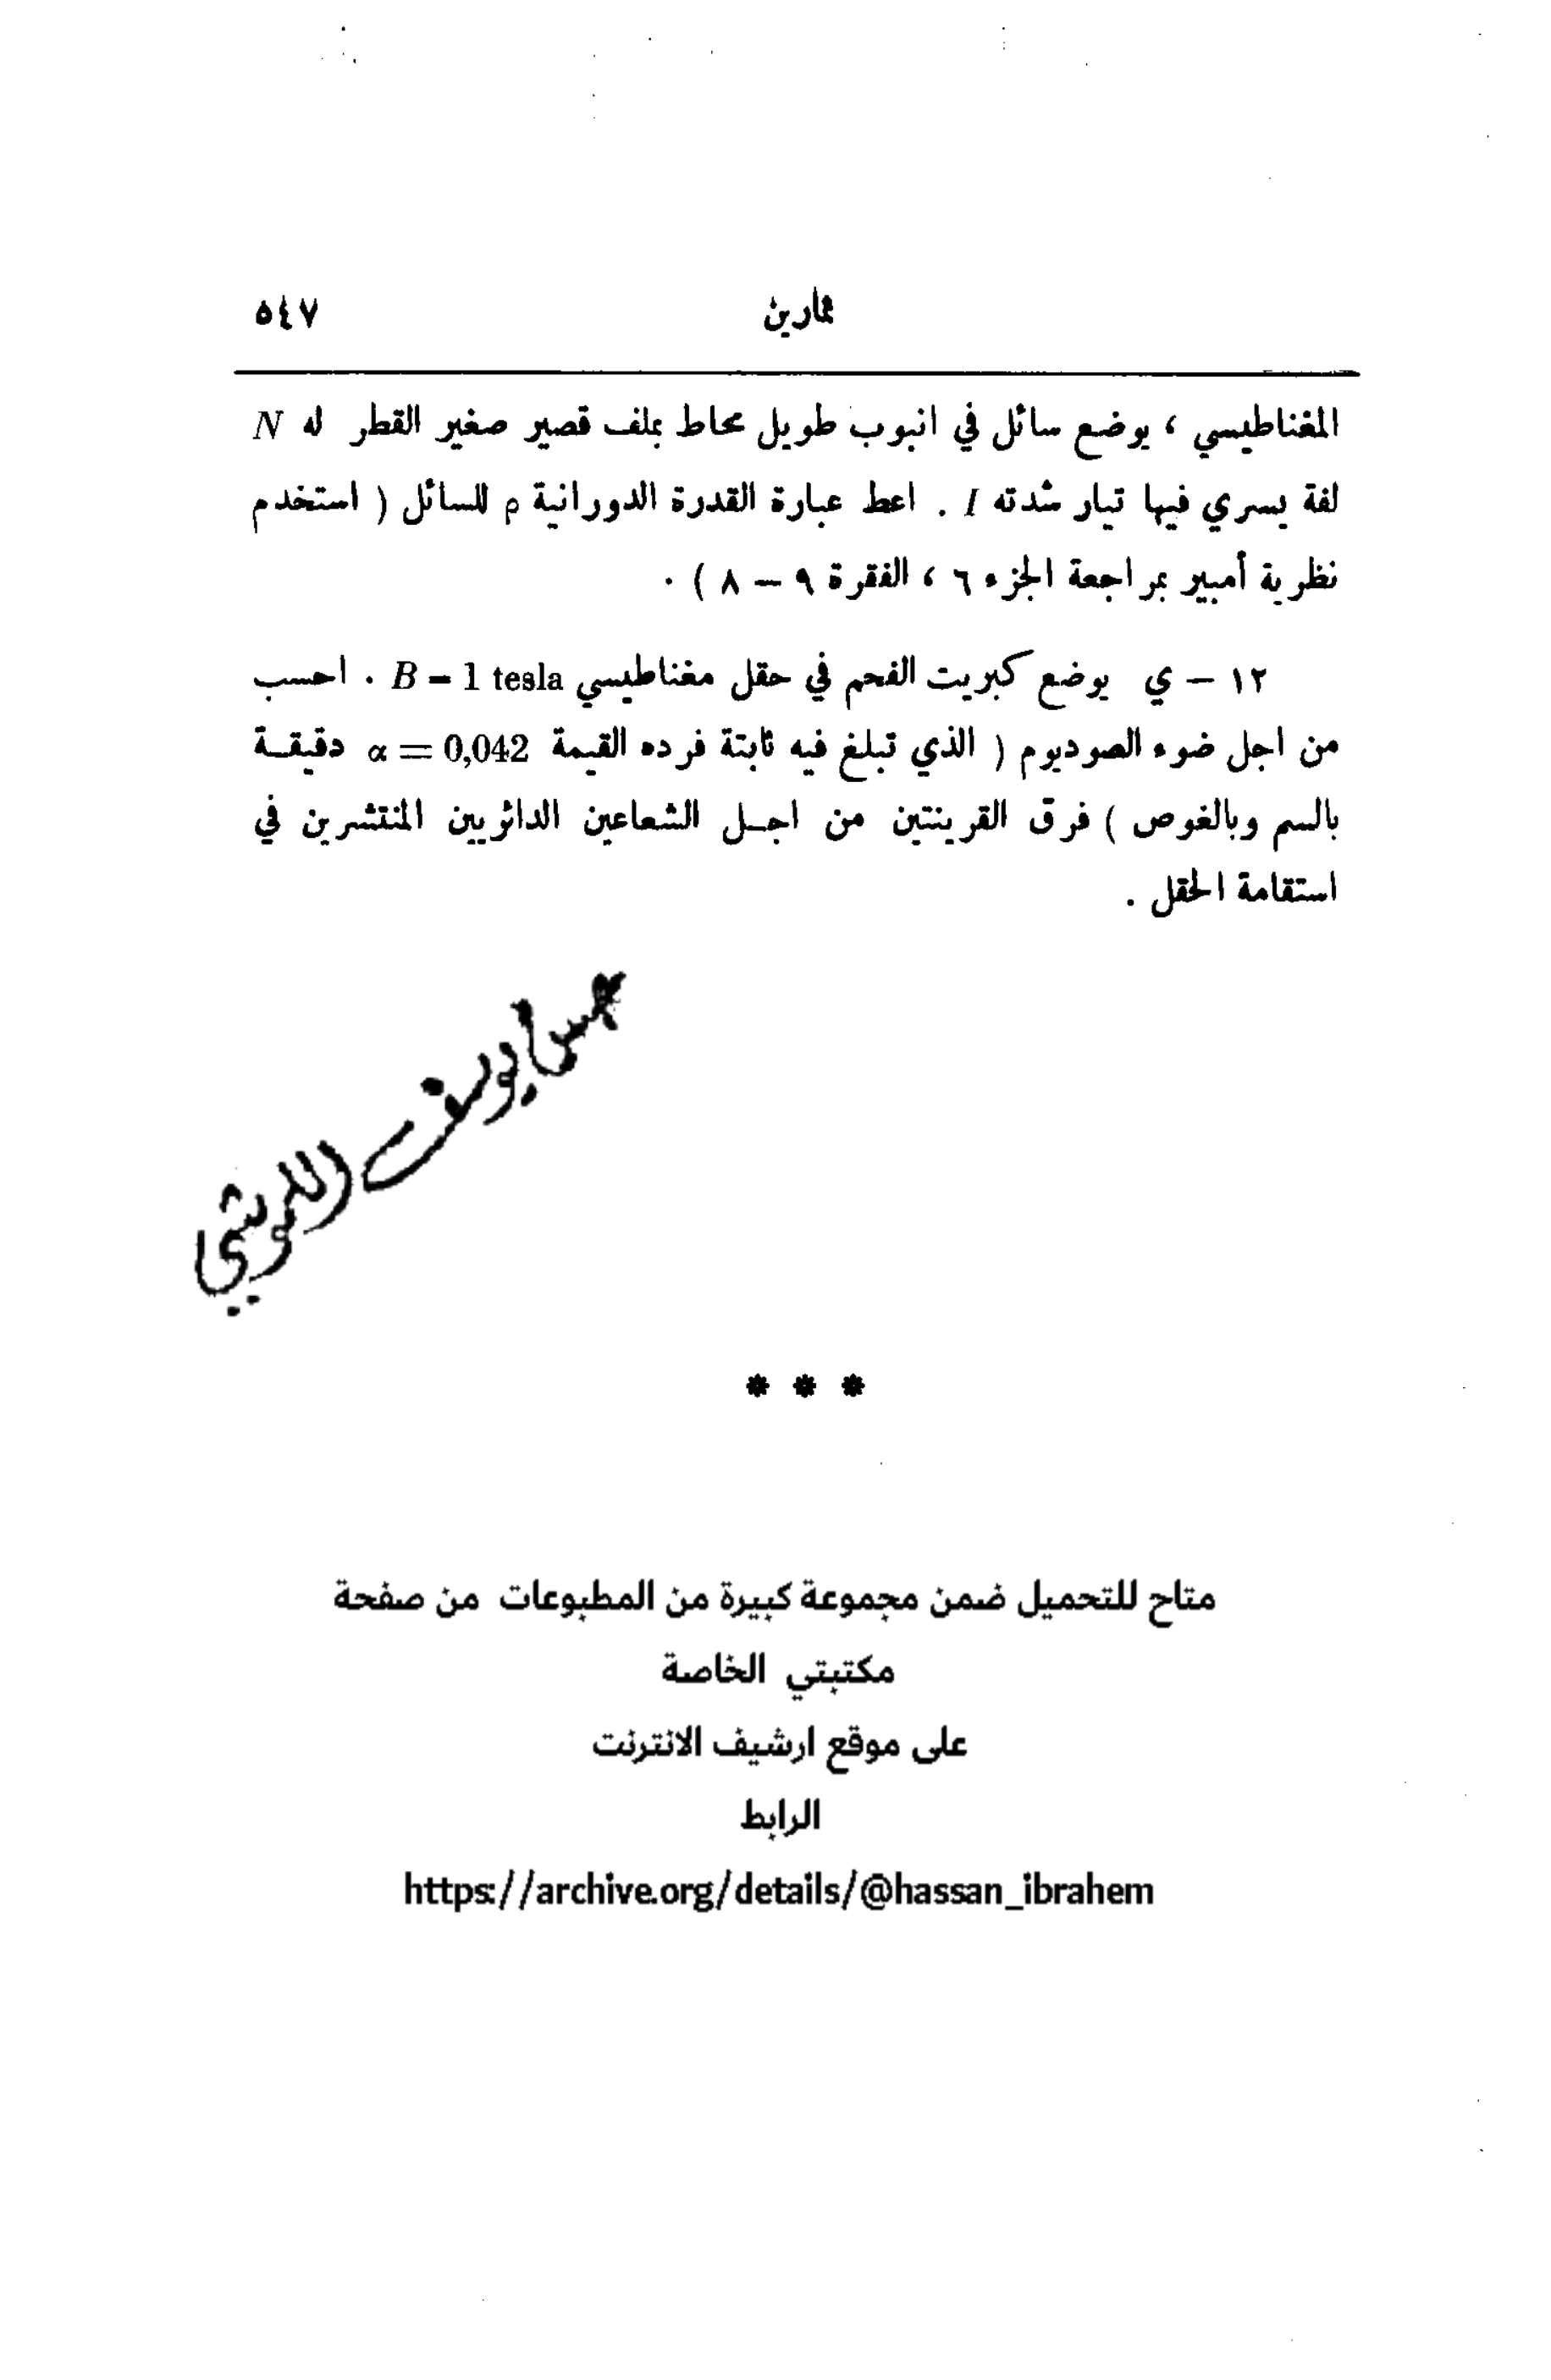 تمارين ٥٤٧
المغناطيسي ، يوضع سائل في انبوب طويل محاط بملف قصير صغير القطر له N
لفة يسري فيها تيار شدته I . اعط عبارة القدرة الدورانية ρ للسائل ( استخدم
نظرية أمبير بمراجعة الجزء ٦ ، الفقرة ٩ – ٨ ) .
١٢ – ي يوضع كبريت الفحم في حقل مغناطيسي B = 1 tesla . احسب
من اجل ضوء الصوديوم ( الذي تبلغ فيه ثابتة فرده القيمة α = 0,042 دقيقـة
بالسم وبالغوص ) فرق القرينتين من اجـل الشعاعين الدائريين المنتشرين في
استقامة الحقل .
يوسف
* * *
متاح للتحميل ضمن مجموعة كبيرة من المطبوعات من صفحة
مكتبتي الخاصة
على موقع ارشيف الانترنت
الرابط
https://archive.org/details/@hassan_ibrahem